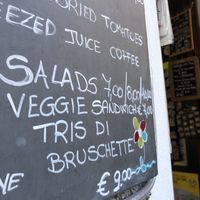 DRIED TOMATOES
EEZED JUICE COFFEE
SALADS 7,00/8,00/
VEGGIE SANDWICH €7,00
TRIS DI
BRUSCHETTE
NE € 9,00